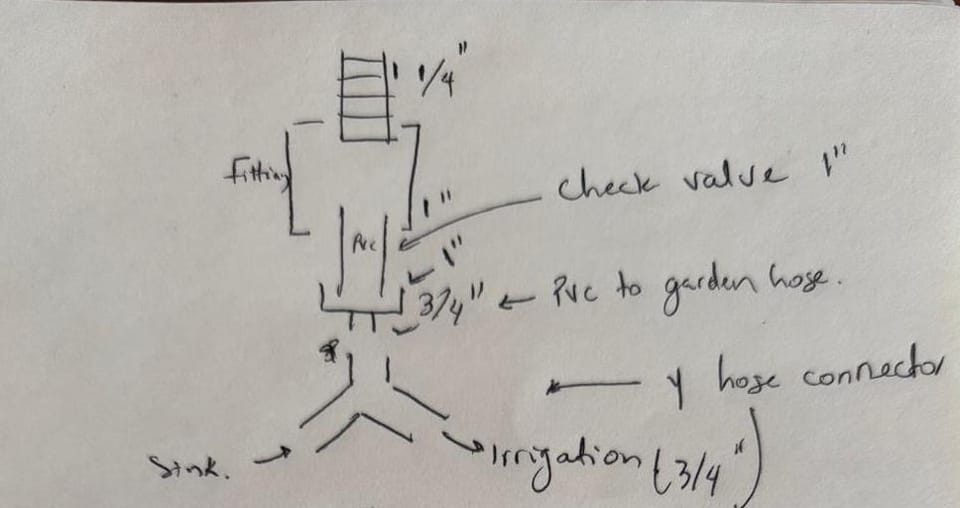 1 1/4"
Fitting
check valve 1"
1"
Pvc
1"
3/4" ← Pvc to garden hose.
Y hose connector
Sink.
Irrigation (3/4")